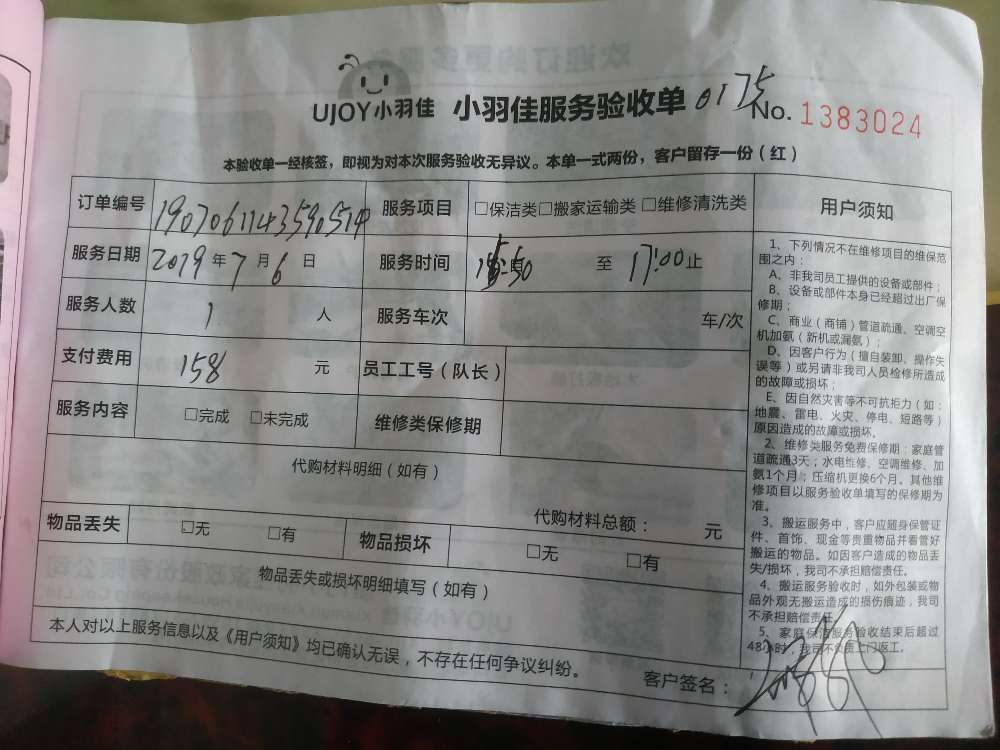 UJOY小羽佳 小羽佳服务验收单 0175 No. 1383024
本验收单一经核签，即视为对本次服务验收无异议。本单一式两份，客户留存一份（红）
订单编号 服务项目 □保洁类□搬家运输类□维修清洗类
服务日期 2019 年 7 月 6 日 服务时间 至 17:00 止
服务人数 1 人 服务车次 车/次
支付费用 158 元 员工工号（队长）
服务内容 □完成 □未完成 维修类保修期
代购材料明细（如有）
代购材料总额： 元
物品丢失 □无 □有 物品损坏 □无 □有
物品丢失或损坏明细填写（如有）
本人对以上服务信息以及《用户须知》均已确认无误，不存在任何争议纠纷。
客户签名：
用户须知
1、下列情况不在维修项目的维保范
围之内：
A、非我司员工提供的设备或部件；
B、设备或部件本身已经超过出厂保
修期；
C、商业（商铺）管道疏通、空调空
机加氨（新机或漏氨）；
D、因客户行为（擅自装卸、操作失
误等）或另请非我司人员检修所造成
的故障或损坏；
E、因自然灾害等不可抗拒力（如：
地震、雷电、火灾、停电、短路等）
原因造成的故障或损坏。
2、维修类服务免费保修期：家庭管
道疏通3天；水电维修、空调维修、加
氨1个月；压缩机更换6个月。其他维
修项目以服务验收单填写的保修期为
准。
3、搬运服务中，客户应随身保管证
件、首饰、现金等贵重物品并看管好
搬运的物品。如因客户造成的物品丢
失/损坏，我司不承担赔偿责任。
4、搬运服务验收时，如外包装或物
品外观无搬运造成的损伤痕迹，我司
不承担赔偿责任。
5、家庭保洁服务验收结束后超过
48小时，我司不负责上门返工。